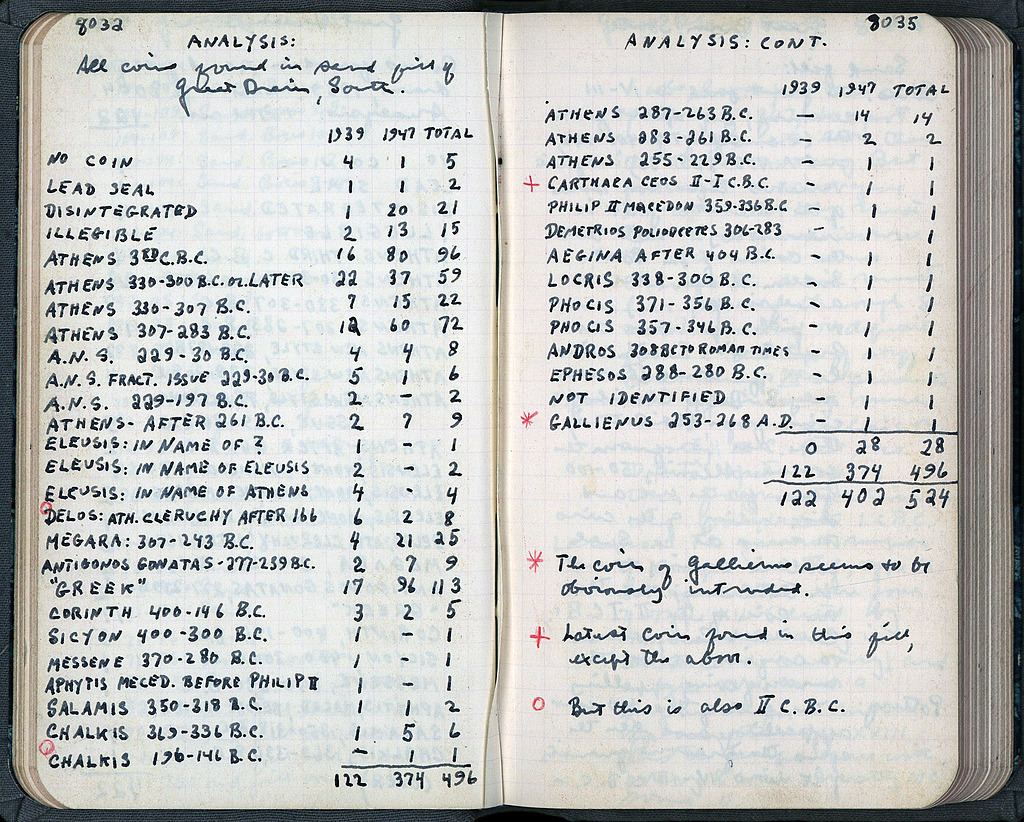 8032
ANALYSIS:
All coins found in sand fill of
Great Drain, South.
1939 1947 TOTAL
NO COIN 4 1 5
LEAD SEAL 1 1 2
DISINTEGRATED 1 20 21
ILLEGIBLE 2 13 15
ATHENS 3RD C.B.C. 16 80 96
ATHENS 330-300 B.C. OR LATER 22 37 59
ATHENS 330-307 B.C. 7 15 22
ATHENS 307-283 B.C. 12 60 72
A.N.S. 229-30 B.C. 4 4 8
A.N.S. FRACT. ISSUE 229-30 B.C. 5 1 6
A.N.S. 229-197 B.C. 2 - 2
ATHENS- AFTER 261 B.C. 2 7 9
ELEUSIS: IN NAME OF ? 1 - 1
ELEUSIS: IN NAME OF ELEUSIS 2 - 2
ELEUSIS: IN NAME OF ATHENS 4 4
O DELOS: ATH. CLERUCHY AFTER 166 6 2 8
MEGARA: 307-243 B.C. 4 21 25
ANTIGONOS GONATAS-277-239 B.C. 2 7 9
"GREEK" 17 96 113
CORINTH 400-146 B.C. 3 2 5
SICYON 400-300 B.C. 1 - 1
MESSENE 370-280 B.C. 1 - 1
APHYTIS MECED. BEFORE PHILIP II 1 1
SALAMIS 350-318 B.C. 1 1 2
CHALKIS 369-336 B.C. 1 5 6
O CHALKIS 196-146 B.C. - 1 1
122 374 496
8035
ANALYSIS: CONT.
1939 1947 TOTAL
ATHENS 287-263 B.C. - 14 14
ATHENS 283-261 B.C. - 2 2
ATHENS 255-229 B.C. - 1 1
+ CARTHAEA CEOS II-I C.B.C. - 1 1
PHILIP II MACEDON 359-336 B.C - 1 1
DEMETRIOS POLIOCETES 306-283 - 1 1
AEGINA AFTER 404 B.C. - 1 1
LOCRIS 338-300 B.C. - 1 1
PHOCIS 371-356 B.C. - 1 1
PHOCIS 357-346 B.C. - 1 1
ANDROS 308 BC TO ROMAN TIMES - 1 1
EPHESOS 288-280 B.C. - 1 1
NOT IDENTIFIED - 1 1
* GALLIENUS 253-268 A.D. - 1 1
0 28 28
122 374 496
122 402 524
* The coin of Gallienus seems to be
obviously intruded.
+ Latest coin found in this fill,
except the above.
O But this is also II C. B.C.